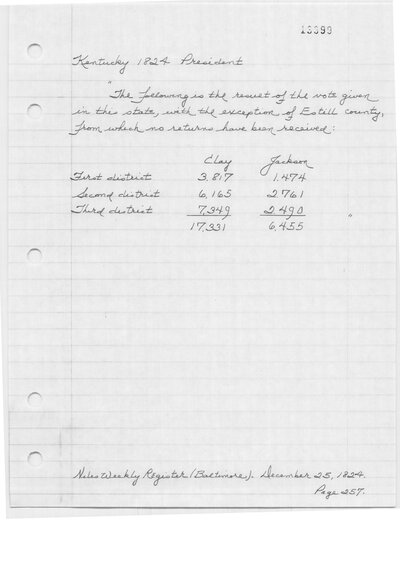 13399
Kentucky 1824 President
"The following is the result of the vote given
in the state, with the exception of Estell county,
from which no returns have been received:
Clay Jackson
First district 3,817 1,474
Second district 6,165 2,761
Third district 7,349 2,490 "
17,331 6,455
Niles Weekly Register (Baltimore). December 25, 1824.
Page 257.